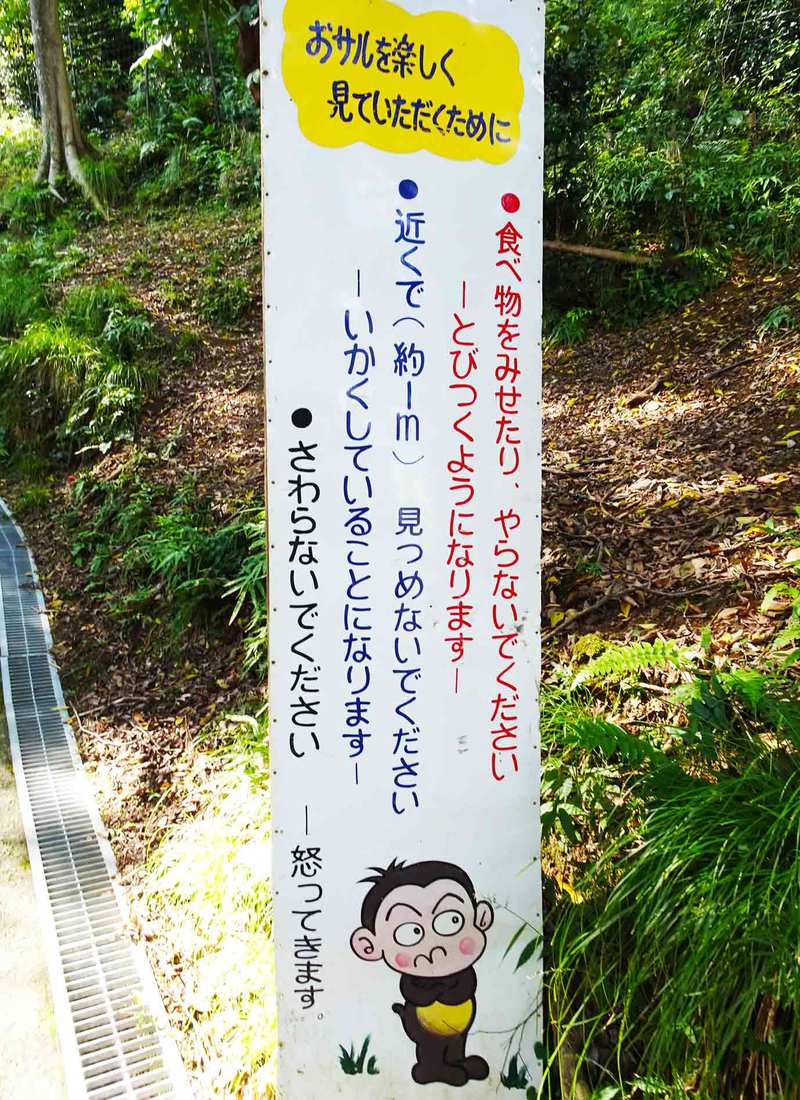 おサルを楽しく
見ていただくために
●食べ物をみせたり、やらないでください
―とびつくようになります―
●近くで(約1m) 見つめないでください
―いかくしていることになります―
●さわらないでください ―怒ってきます。